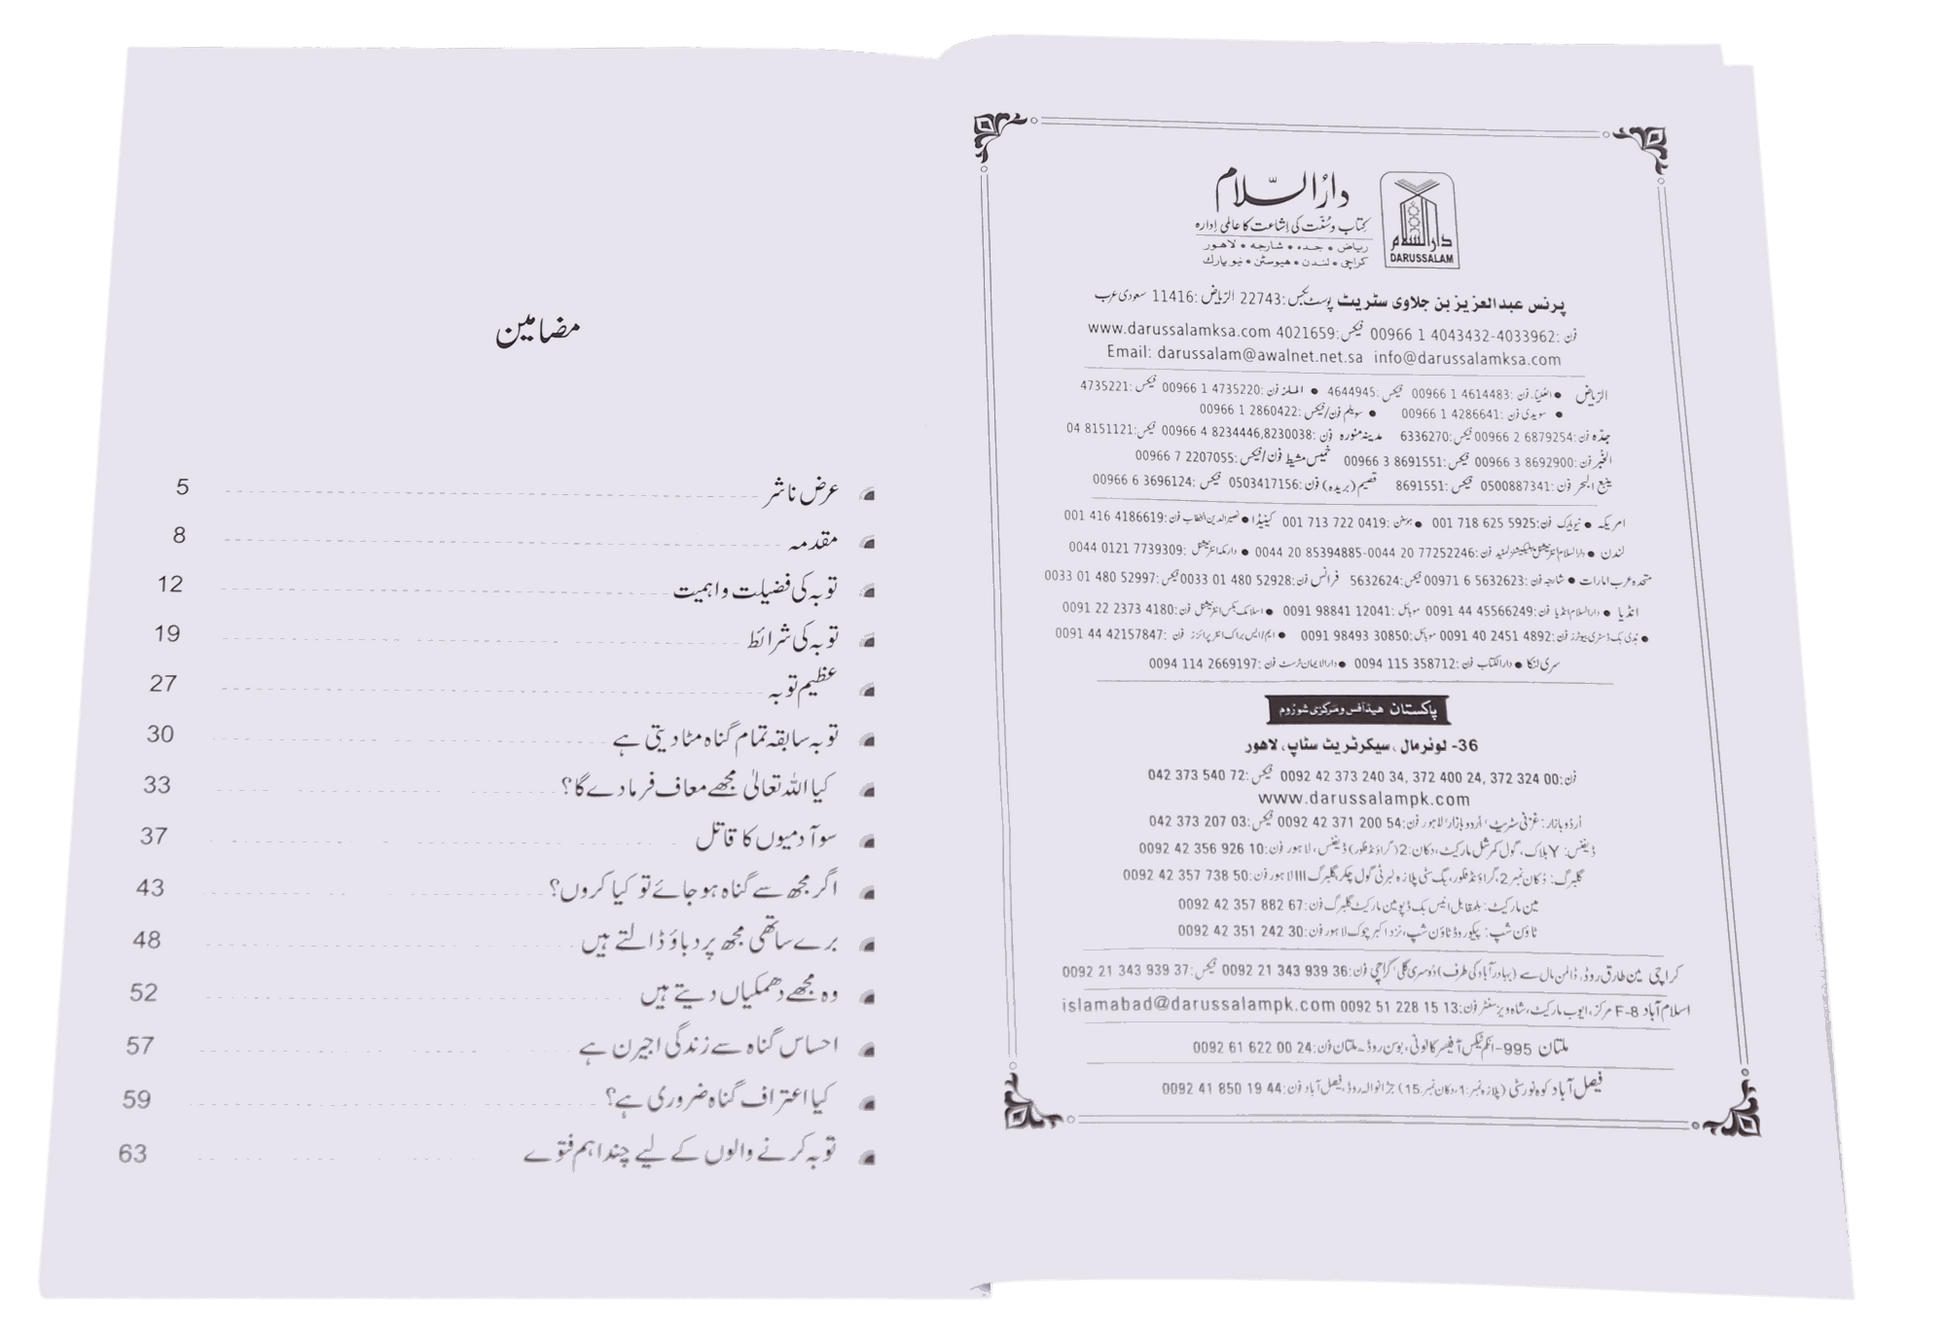 دارُالسّلام
کتاب و سُنّت کی اشاعت کا عالمی ادارہ
ریاض • جدہ • شارجہ • لاهور
کراچی • لندن • هیوسٹن • نیو یارك
دارالسلام
DARUSSALAM
پرنس عبدالعزیز بن جلاوی سٹریٹ پوسٹ بکس:22743 الریاض :11416 سعودی عرب
فن :4033962-4043432 1 00966 فیکس:4021659 www.darussalamksa.com
Email: darussalam@awalnet.net.sa info@darussalamksa.com
الریاض • العلیا۔ فن :4614483 1 00966 فیکس :4644945 • الملز فن :4735220 1 00966 فیکس :4735221
• سویدی فن :4286641 1 00966 • سویلم فن/فیکس :2860422 1 00966
جدّہ فن :6879254 2 00966 فیکس :6336270 مدینہ منورہ فن :8234446,8230038 4 00966 فیکس :8151121 04
الخبر فن :8692900 3 00966 فیکس :8691551 3 00966 خمیس مشیط فن/فیکس :2207055 7 00966
ینبع البحر فن :0500887341 فیکس :8691551 قصیم (بریدہ) فن :0503417156 فیکس :3696124 6 00966
امریکہ • نیویارک فن :5925 625 718 001 • ہوسٹن :0419 722 713 001 کینیڈا • نصیرالدین الخطاب فن :4186619 416 001
لندن • دارالسلام انٹرنیشنل پبلیکیشنز لمیٹڈ فن :77252246 20 0044-85394885 20 0044 • دارمکہ انٹرنیشنل :7739309 0121 0044
متحدہ عرب امارات • شارجہ فن :5632623 6 00971 فیکس :5632624 فرانس فن :52928 480 01 0033 فیکس :52997 480 01 0033
انڈیا • دارالسلام انڈیا فن :45566249 44 0091 موبائل :12041 98841 0091 • اسلامک بکس انٹرنیشنل فن :4180 2373 22 0091
• ہدیٰ بک ڈسٹری بیوٹرز فن :4892 2451 40 0091 موبائل :30850 98493 0091 • ایم/ایس براک انٹرپرائزز فن :42157847 44 0091
سری لنکا • دارالکتاب فن :358712 115 0094 • دارالایمان ٹرسٹ فن :2669197 114 0094
پاکستان ھیڈآفس و مرکزی شوروم
36- لوئرمال ، سیکرٹریٹ سٹاپ، لاھور
فن :00 324 372 ,24 400 372 ,34 240 373 42 0092 فیکس :72 540 373 042
www.darussalampk.com
اُردو بازار: غزنی سٹریٹ، اُردو بازار، لاہور فن :54 200 371 42 0092 فیکس :03 207 373 042
ڈیفنس: Y بلاک، گول کمرشل مارکیٹ، دکان:2 (گراؤنڈ فلور) ڈیفنس، لاہور فن :10 926 356 42 0092
گلبرگ: دکان نمبر 2، گراؤنڈ فلور، بگ سٹی پلازہ لبرٹی گول چکر، گلبرگ III لاہور فن :50 738 357 42 0092
مین مارکیٹ: بلمقابل انیس بک ڈپو مین مارکیٹ گلبرگ فن :67 882 357 42 0092
ٹاؤن شپ: پیکو روڈ ٹاؤن شپ، نزد اکبر چوک لاہور فن :30 242 351 42 0092
کراچی مین طارق روڈ، ڈالمن مال سے (بہادرآباد کی طرف) دوسری گلی کراچی فن :36 939 343 21 0092 فیکس :37 939 343 21 0092
اسلام آباد F-8 مرکز، ایوب مارکیٹ، شاہ ویز سنٹر فن :13 15 228 51 0092 islamabad@darussalampk.com
ملتان 995- انکم ٹیکس آفیسرز کالونی، بوسن روڈ۔ ملتان فن :24 00 622 61 0092
فیصل آباد کوہ نور سٹی (پلازہ نمبر:1، دکان نمبر:15) جڑانوالہ روڈ، فیصل آباد فن :44 19 850 41 0092
مضامین
عرض ناشر 5
مقدمہ 8
توبہ کی فضیلت و اہمیت 12
توبہ کی شرائط 19
عظیم توبہ 27
توبہ سابقہ تمام گناہ مٹا دیتی ہے 30
کیا اللہ تعالیٰ مجھے معاف فرما دے گا؟ 33
سو آدمیوں کا قاتل 37
اگر مجھ سے گناہ ہو جائے تو کیا کروں؟ 43
برے ساتھی مجھ پر دباؤ ڈالتے ہیں 48
وہ مجھے دھمکیاں دیتے ہیں 52
احساس گناہ سے زندگی اجیرن ہے 57
کیا اعتراف گناہ ضروری ہے؟ 59
توبہ کرنے والوں کے لیے چند اہم فتوے 63